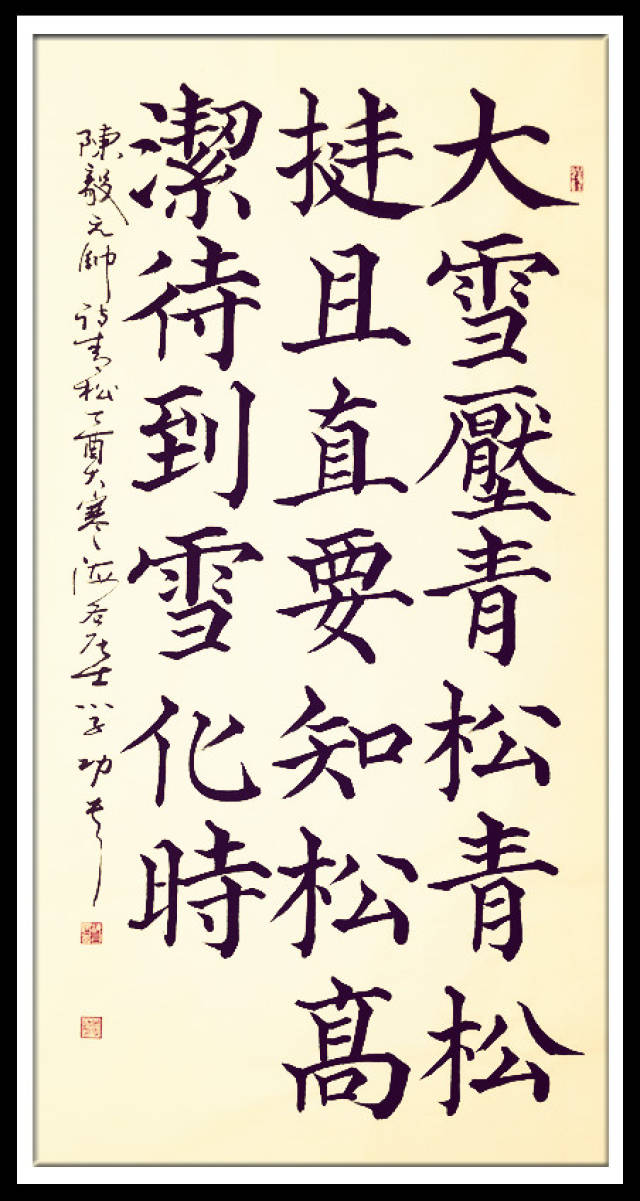 大雪壓青松青松
挺且直要知松髙
潔待到雪化時
陳毅元帥詩青松丁酉大寒
居士
功書